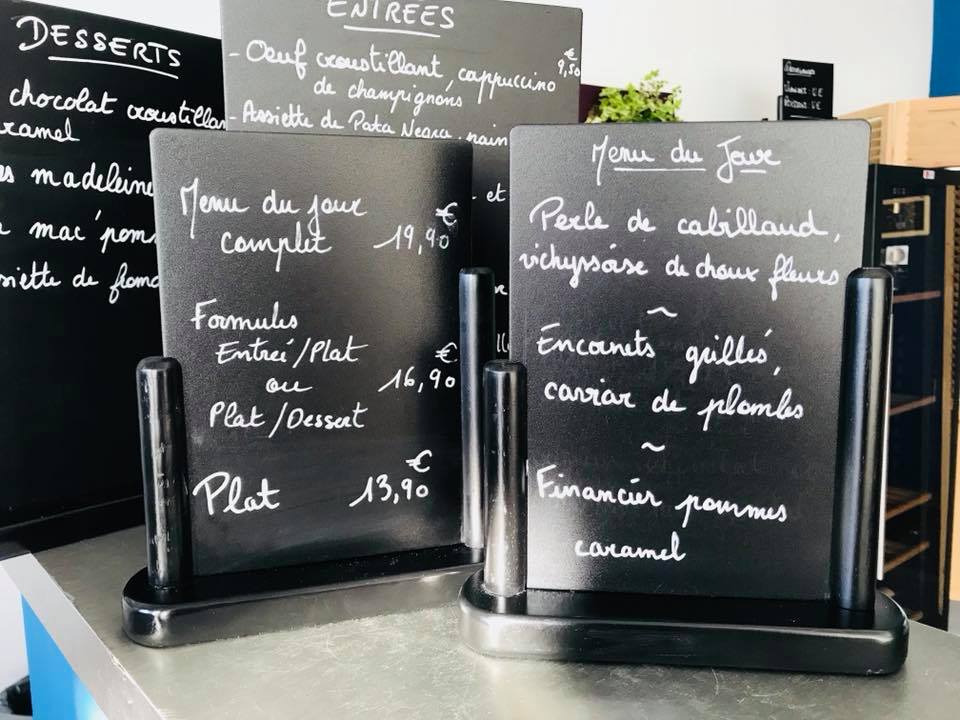 DESSERTS
chocolat croustillan
ramel
madeleine
mac' pom
siette de
ENTRÉES
- Oeuf croustillant, cappuccino
de champignons
€
9,50
- Assiette de Pata Negra, pain
et
Menu du jour
complet 19,90 €
Formules
Entreé/Plat
ou 16,90 €
Plat/Dessert
Plat 13,90 €
Menu du Jour
Perle de cabillaud,
vichyssoise de choux fleurs
~
Encornets grillés,
caviar de plombs
~
Financier pommes
caramel